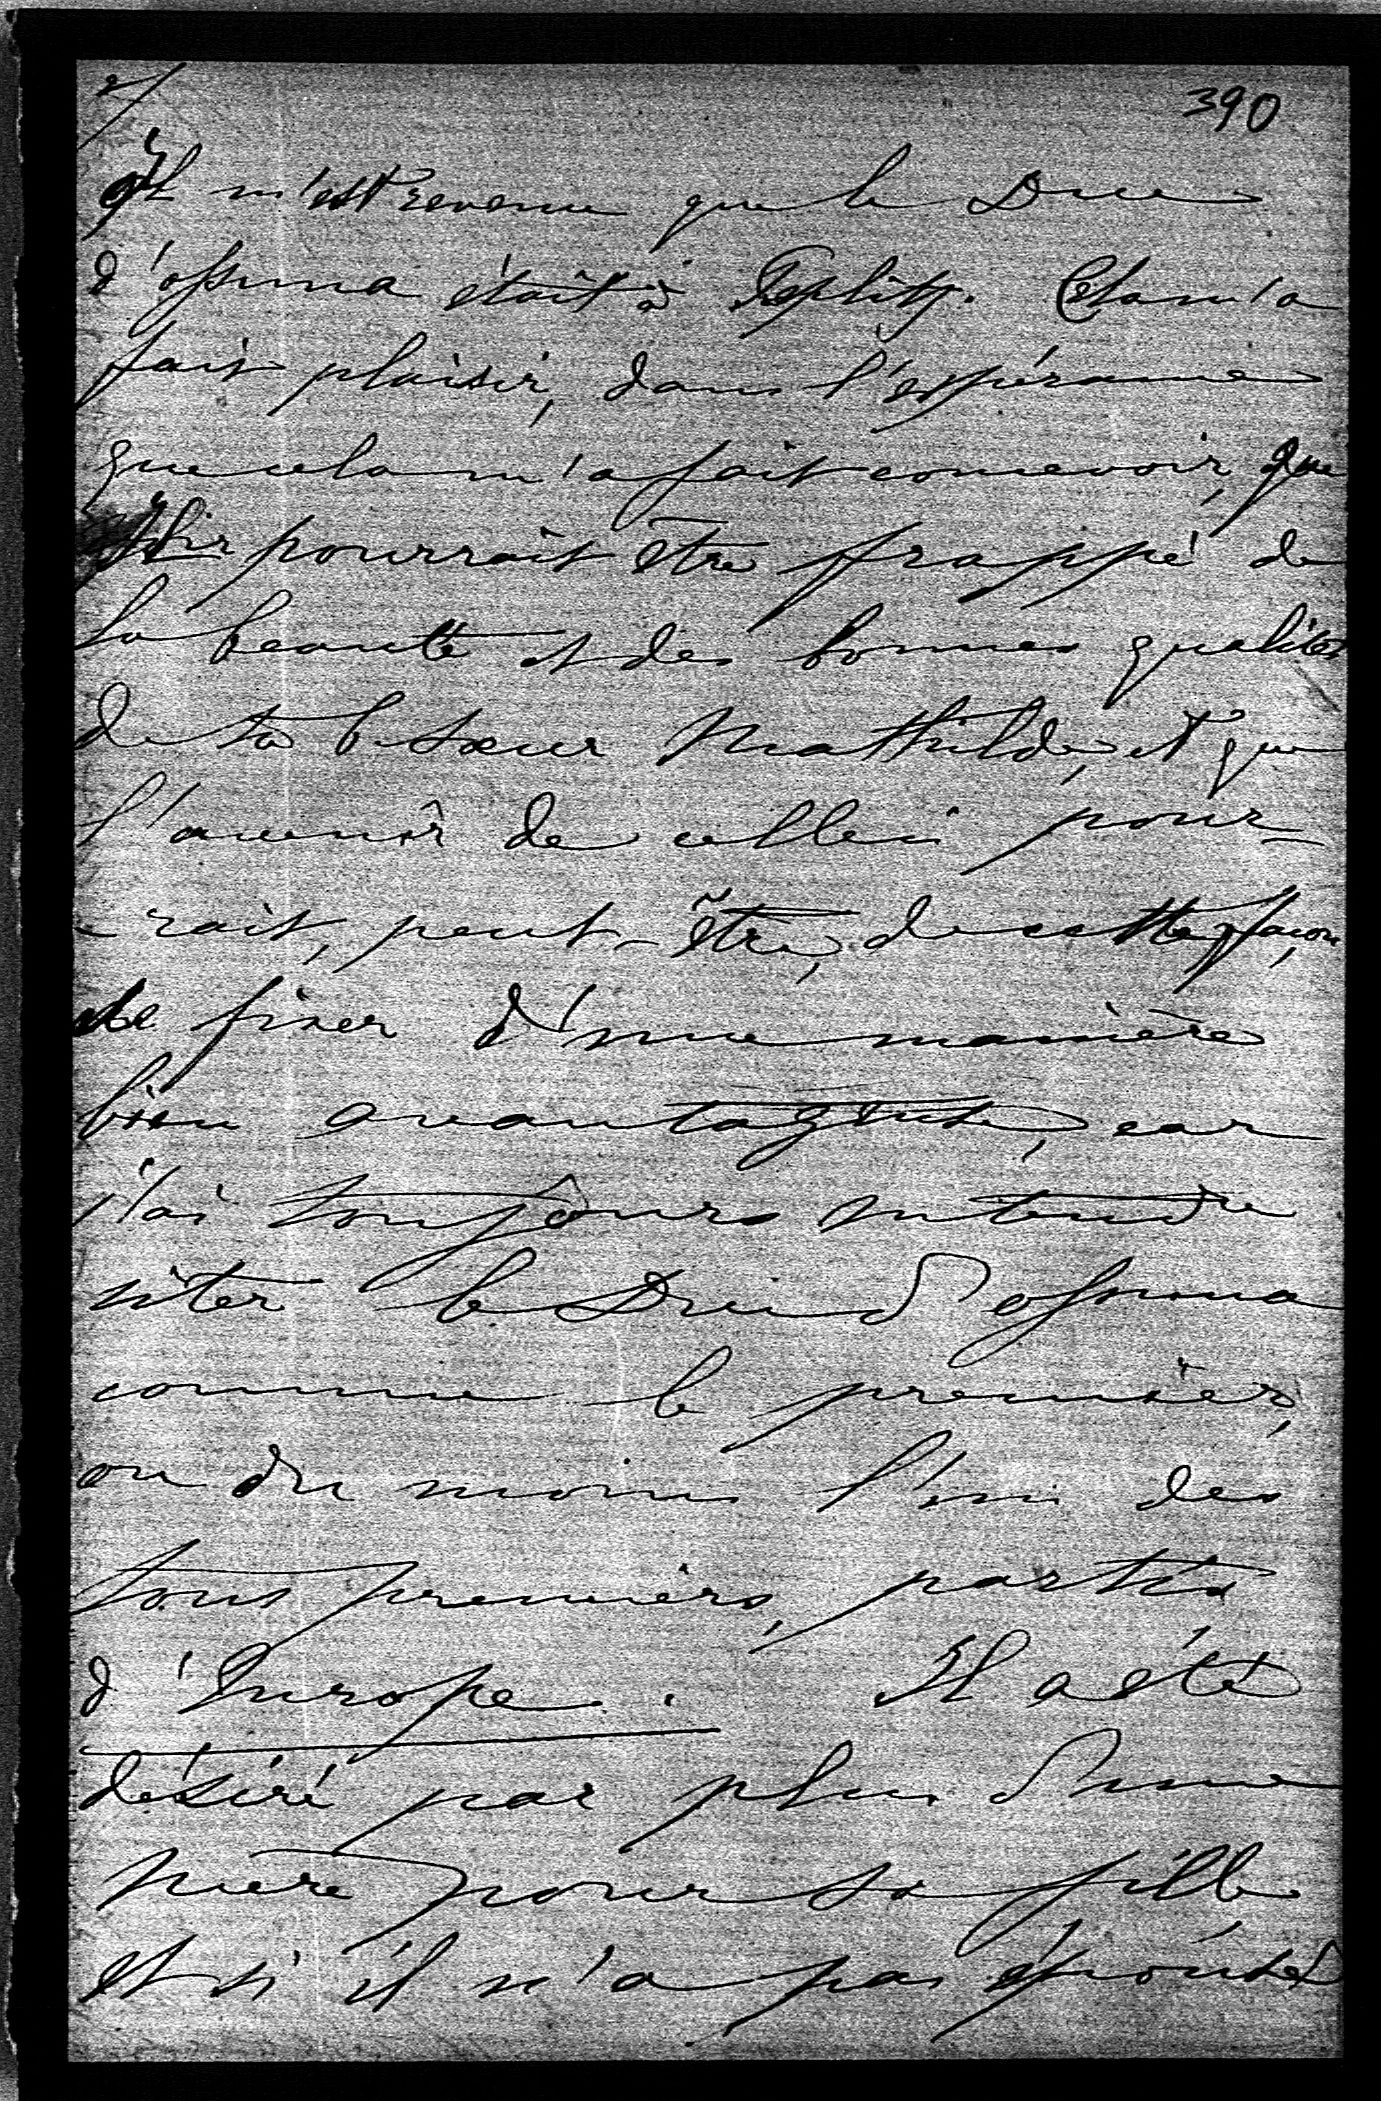 390
2/
Il m'est revenu que le Duc
d'ossuna était à Teplitz. Cela m'a
fait plaisir, dans l'espérance
que cela m'a fait concevoir, que
pourrait être frappé de
la beauté et des bonnes qualités
de ta b. soeur Mathilde, et que
l'avenir de celleci pour-
-rait, peut-être, de cette façon,
se fixer d'une manière
bien avantageuse, car
j'ai toujours entendu
citer le Duc d'ossuna
comme le premier,
ou du moins l'un des
tous premiers, partis
d'Europe. Il a été
désiré par plus d'une
mère pour sa fille
et si il n'a pas épousé